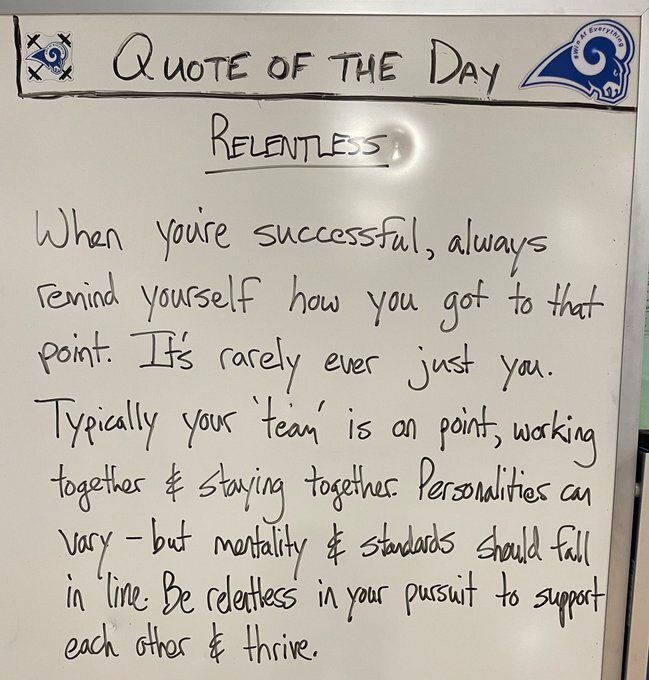 QUOTE OF THE DAY
#Win At Everything
RELENTLESS
When you're successful, always
remind yourself how you got to that
point. It's rarely ever just you.
Typically your 'team' is on point, working
together & staying together. Personalities can
vary - but mentality & standards should fall
in line. Be relentless in your pursuit to support
each other & thrive.